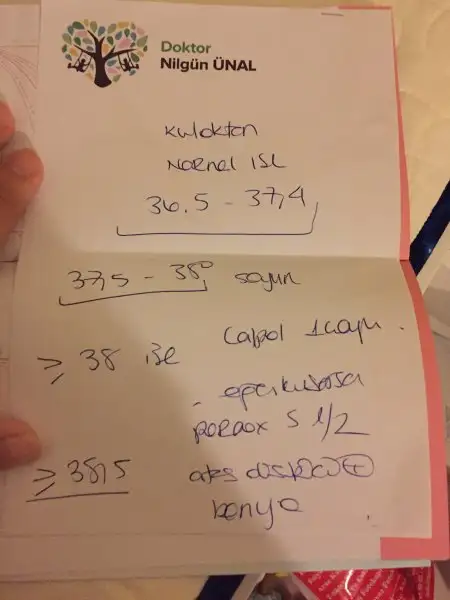 Doktor
Nilgün ÜNAL
Kulaktan
Normal ISI
36.5 - 37,4
37,5 - 38° soyun
≥ 38 ise Calpol 1
S 1/2
≥ 38,5 ateş düşürücü +
banyo